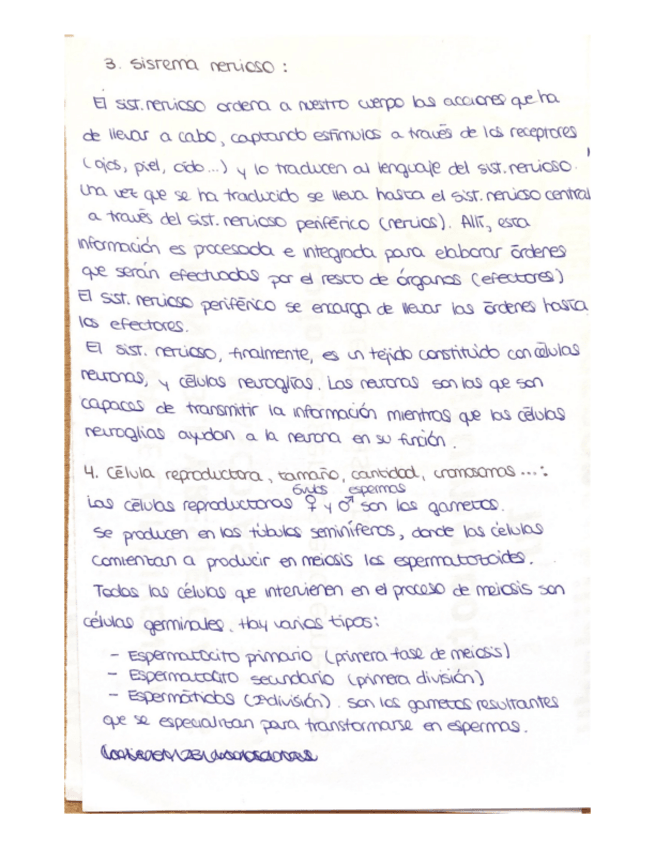 3. sistema nervioso :
El sist. nervioso ordena a nuestro cuerpo las acciones que ha
de llevar a cabo, captando estímulos a través de los receptores
(ojos, piel, oído...) y lo traducen al lenguaje del sist. nervioso.
Una vez que se ha traducido se lleva hasta el sist. nervioso central
a través del sist. nervioso periférico (nervios). Allí, esta
información es procesada e integrada para elaborar órdenes
que serán efectuadas por el resto de órganos (efectores)
El sist. nervioso periférico se encarga de llevar las órdenes hasta
los efectores.
El sist. nervioso, finalmente, es un tejido constituido con células
neuronas, y células neuroglías. Las neuronas son las que son
capaces de transmitir la información mientras que las células
neuroglías ayudan a la neurona en su función.
4. Célula reproductora, tamaño, cantidad, cromosomas ... :
óvulos espermas
Las células reproductoras ♀ y ♂ son los gametos.
Se producen en los túbulos seminíferos, donde las células
comienzan a producir en meiosis los espermatozoides.
Todas las células que intervienen en el proceso de meiosis son
células germinales. Hay varios tipos:
- Espermatocito primario (primera fase de meiosis)
- Espermatocito secundario (primera división)
- Espermátidas (2ª división). Son los gametos resultantes
que se especializan para transformarse en espermas.